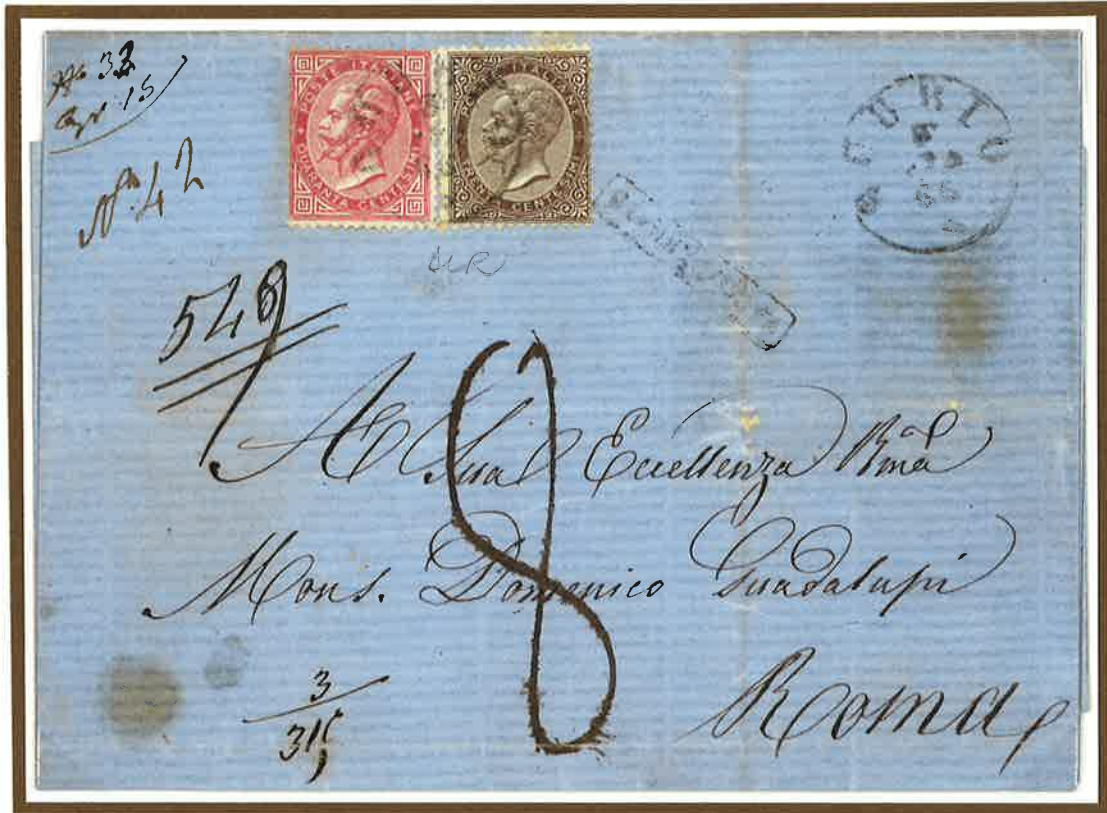 POSTE ITALIANE
QUARANTA CENTESIMI
POSTE ITALIANE
TRENTA CENTESIMI
gr 15
N° 42
549
8
A Sua Eccellenza Rma
Mons. Domenico Guadalupi
Roma
3